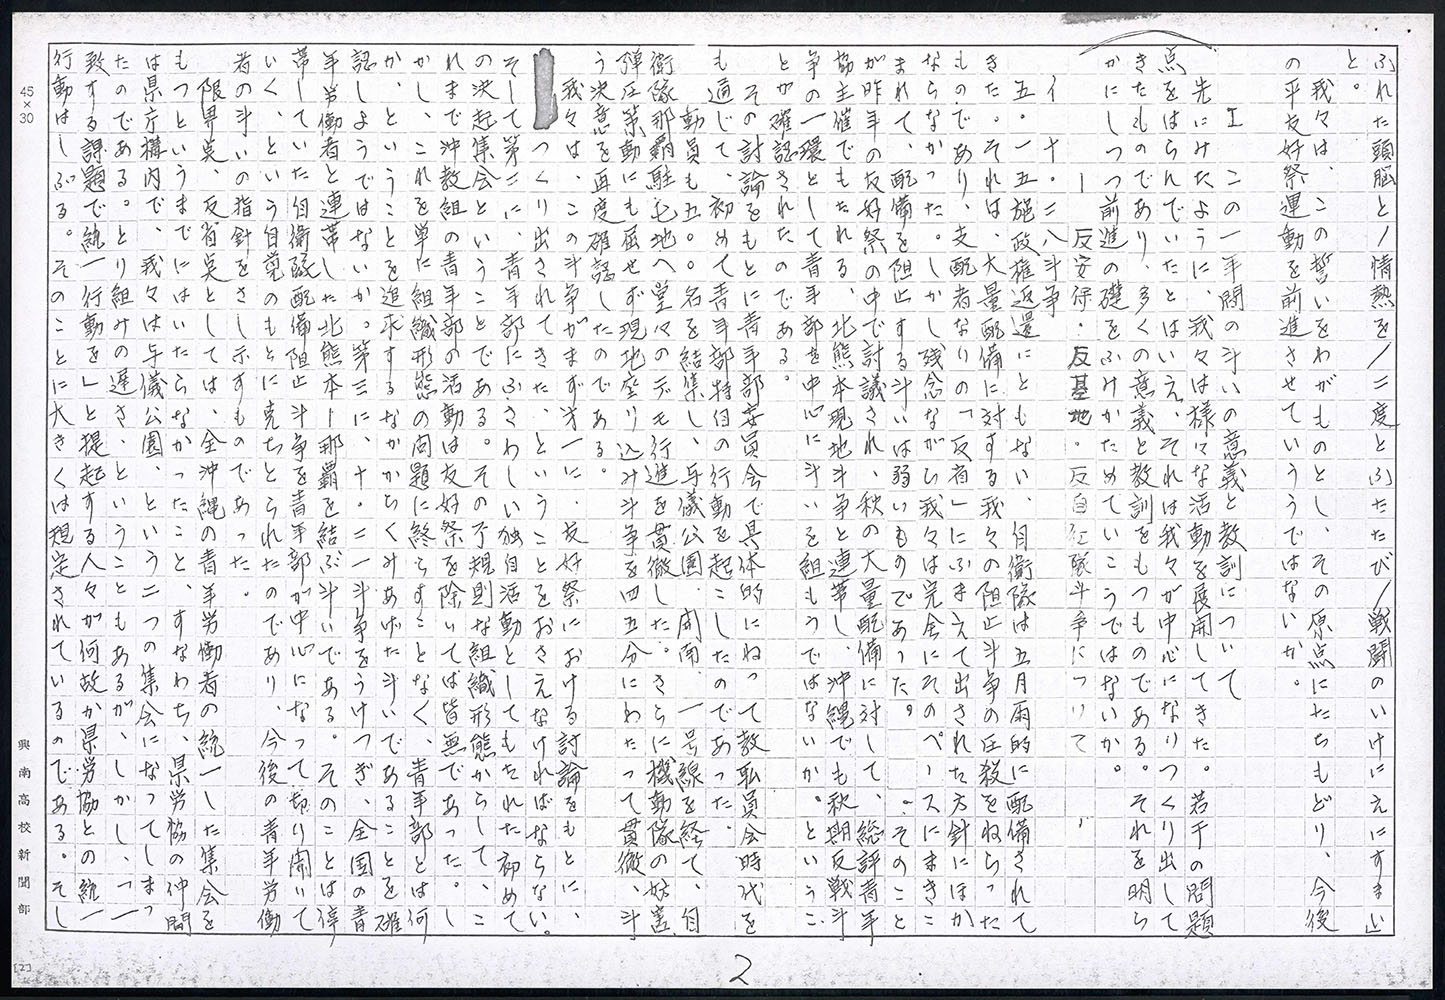 ふれた頭脳と/情熱を//二度とふたたび/戦闘のいけにえにすまい」
と。
我々は、この誓いをわがものとし、その原点にたちもどり、今後
の平友好祭運動を前進させていこうではないか。
エ この一年間の斗いの意義と教訓について
先にみたように、我々は様々な活動を展開してきた。若干の問題
点をはらんでいたとはいえ、それは我々が中心になりつくり出して
きたものであり、多くの意義と教訓をもつものである。それを明ら
かにしつつ前進の礎をふみかためていこうではないか。
ー 反安保・反基地・反自衛隊斗争について
イ 十・二八斗争
五。一五施政権返還にともない、自衛隊は五月雨的に配備されて
きた。それは、大量配備に対する我々の阻止斗争の圧殺をねらった
ものであり、支配者なりの「反省」にふまえて出された方針にほか
ならなかった。しかし残念ながら我々は完全にそのペースにまきこ
まれて、配備を阻止する斗いは弱いものであった。そのこと
が昨年の友好祭の中で討議され、秋の大量配備に対して、総評青年
協主催でもたれる、北熊本現地斗争と連帯し、沖縄でも秋期反戦斗
争の一環として青年部を中心に斗いを組もうではないか。というこ
とが確認されたのである。
その討論をもとに青年部委員会で具体的にねって教転員会時代を
も通じて、初めて青年部独自の行動を起こしたのであった。
動員も五〇〇名を結集し、与儀公園、開南、一号線を経て、自
衛隊那覇駐屯地へ堂々のデモ行進を貫徹した。さらに機動隊の妨害、
弾圧策動にも屈せず現地座り込み斗争を四五分にわたって貫徹、斗
う決意を再度確認したのである。
我々は、この斗争がまず才一に、友好祭における討論をもとに、
つくり出されてきた、ということをおさえなければならない。
そして第二に、青年部にふさわしい独自活動としてもたれた初めて
の決起集会ということである。その不規則な組織形態からして、こ
れまで沖教組の青年部の活動は友好祭を除いては皆無であった。し
かし、これを単に組織形態の問題に終らすことなく、青年部とは何
か、ということを追求するなかからくみあげた斗いであることを確
認しようではないか。第三に、十・二一斗争をうけつぎ、全国の青
年労働者と連帯した北熊本ー那覇を結ぶ斗いである。そのことは停
滞していた自衛隊配備阻止斗争を青年部が中心になって切り開いて
いく、という自覚のもとに克ちとられたのであり、今後の青年労働
者の斗いの指針をさし示すものであった。
限界点、反省点としては、全沖縄の青年労働者の統一した集会を
もつというまでにはいたらなかったこと、すなわち、県労協の仲間
は県庁構内で、我々は与儀公園、という二つの集会になってしまっ
たのである。とり組みの遅さ、ということもあるが、しかし、「一
致する課題で統一行動を」と提起する人々が何故か県労協との統一
行動はしぶる。そのことに大きくは規定されているのである。そし
45×30
興南高校新聞部
[2]
2